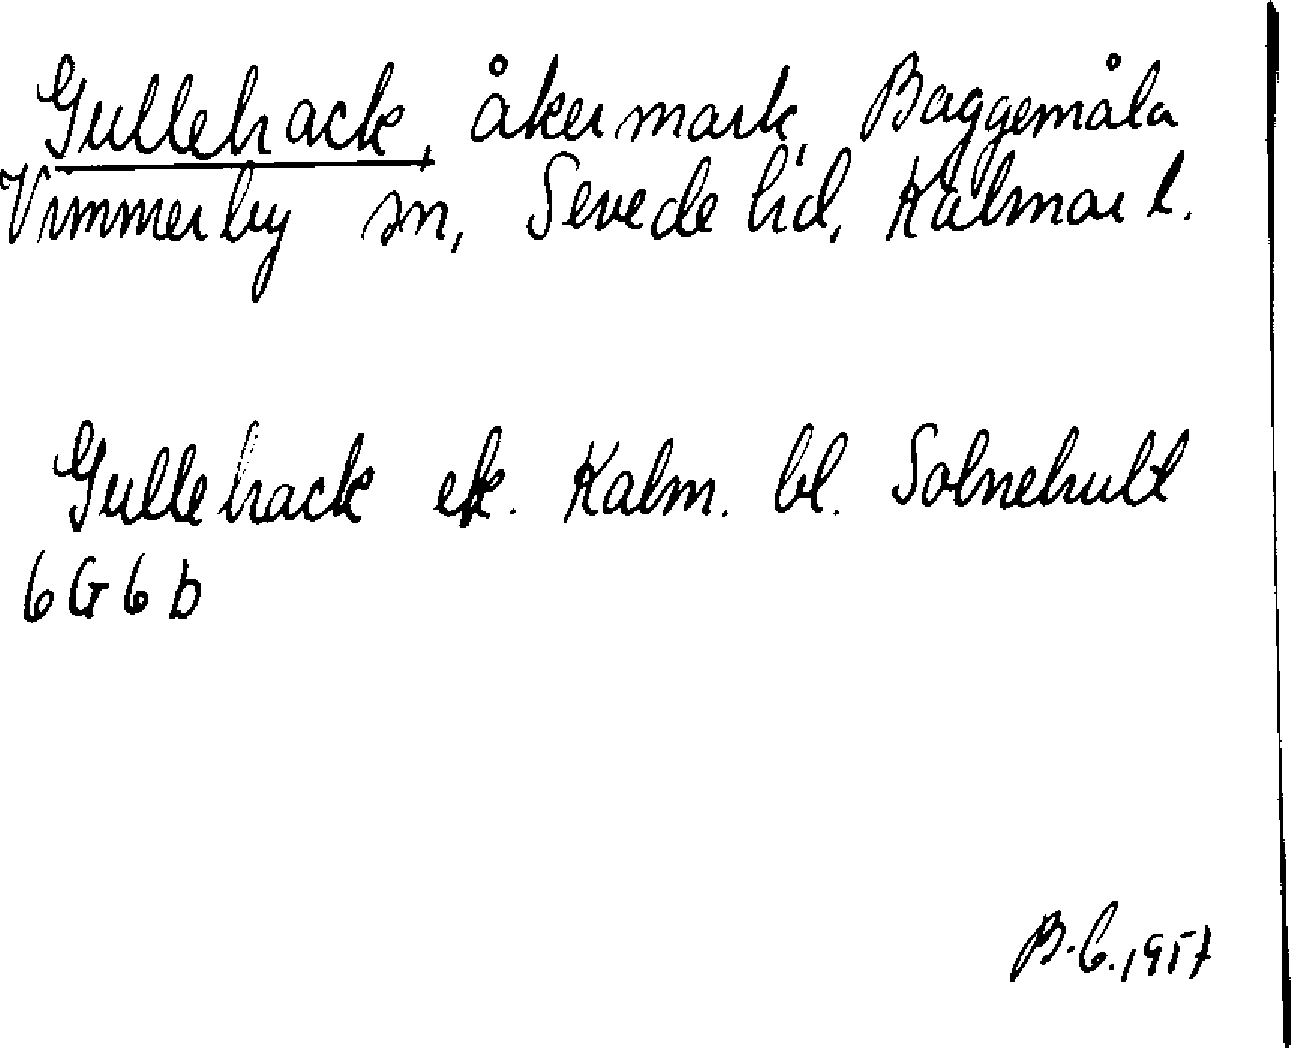 Gullehack, åkermark, Baggemåla
Vimmerby sn, Sevede hd, Kalmar l.
Gullehack ek. Kalm. bl. Solnehult
6G6b
B.C. 1957